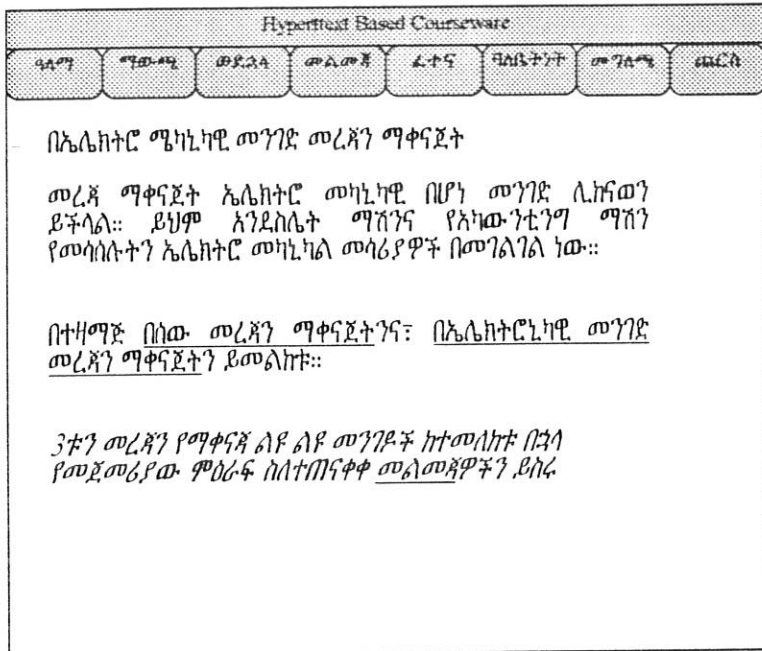 Hyperttext Based Courseware
ዓላማ ማውጫ ወደኋላ መልመጃ ፈተና ባለቤትነት መግለጫ ጨርስ
በኤሌክትሮ ሜካኒካዊ መንገድ መረጃን ማቀናጀት
መረጃ ማቀናጀት ኤሌክትሮ መካኒካዊ በሆነ መንገድ ሊከናወን
ይችላል። ይህም እንደስሌት ማሽንና የአካውንቲንግ ማሽን
የመሳሰሉትን ኤሌክትሮ መካኒካል መሳሪያዎች በመገልገል ነው።
በተዛማጅ በሰው መረጃን ማቀናጀትንና፣ በኤሌክትሮኒካዊ መንገድ
መረጃን ማቀናጀትን ይመልከቱ።
3ቱን መረጃን የማቀናጃ ልዩ ልዩ መንገዶች ከተመለከቱ በኋላ
የመጀመሪያው ምዕራፍ ስለተጠናቀቀ መልመጃዎችን ይስሩ